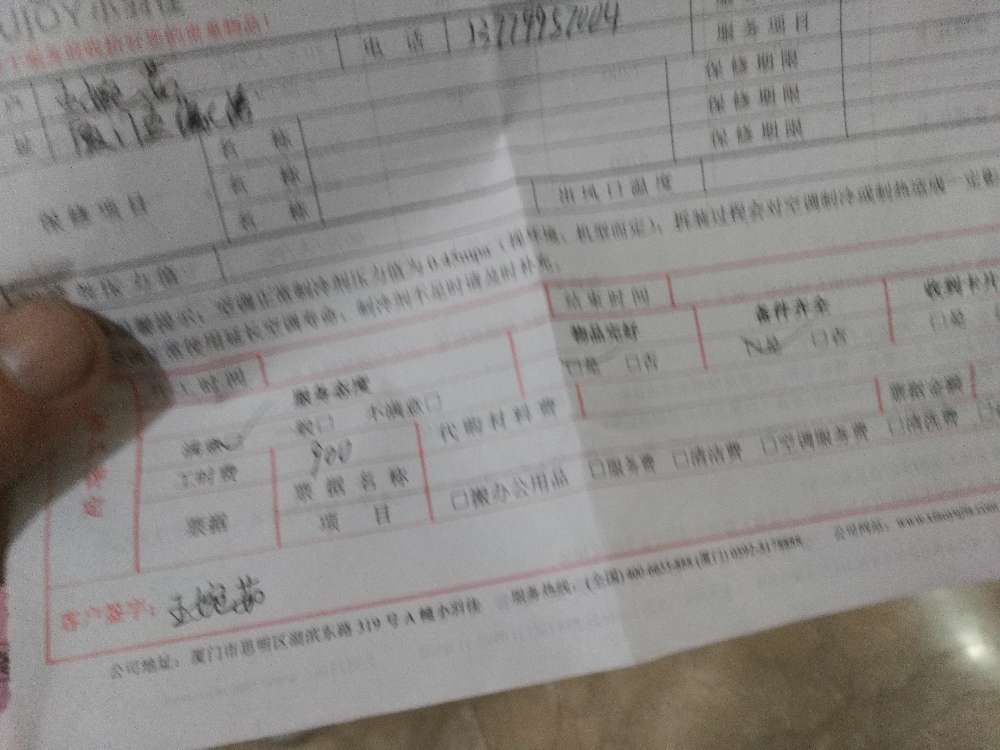 小羽佳
电 话 13779957004
服 务 项 目
保 修 期 限
名 称 保 修 期 限
名 称 保 修 期 限
保 修 项 目
名 称 出 风 口 温 度
压 力 值
提示：空调正常制冷剂压力值为0.45mpa（视环境、机型而定）；拆装过程会对空调制冷或制热造成一定影
常使用延长空调寿命，制冷剂不足时请及时补充。
工时间 结束时间
服务态度 物品完好 备件齐全 收到卡片
满意 较□ 不满意□ □是 □否 是 □否 □是
工时费 900 代 购 材 料 费 票据金额
票据 票 据 名 称 □搬办公用品 □服务费 □清洁费 □空调服务费 □清洗费
项 目
客户签字：王婉茹
公司地址：厦门市思明区湖滨东路 319 号 A 幢小羽佳 服务热线：(全国) 400-6655-888 (厦门) 0592-5178888 公司网站：www.xiaoyujia.com